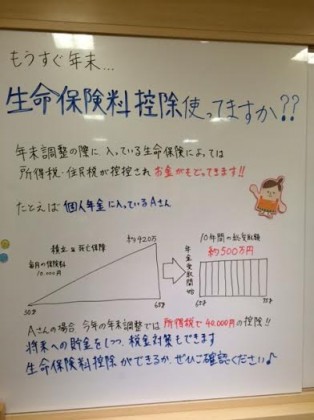 もうすぐ年末...
生命保険料控除使ってますか??
年末調整の際に入っている生命保険によっては
所得税・住民税が控除され お金がもどってきます!!
たとえば 個人年金に入っているAさん
積立 & 死亡保障
約420万
毎月の保険料
10,000円
30才
65才
年金受取開始
10年間の総受取額
約500万円
65才
75才
Aさんの場合、今年の年末調整では 所得税で40,000円の控除!!
将来への貯金をしつつ、税金対策もできます
生命保険料控除ができるか、ぜひご確認ください♪